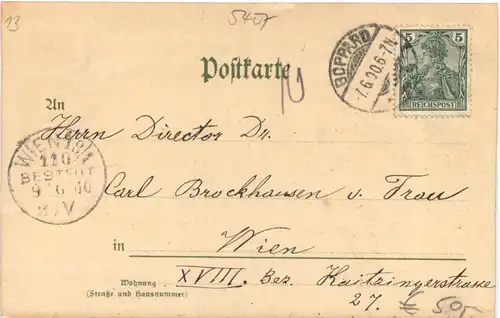 13
5407
Postkarte
BOPPARD
-7.6.00.6-7N.
5
5
REICHSPOST
An
Herrn Director Dr.
WIEN 18/1
110
BESTELLT
9 6 00
Carl Brockhausen u. Frau
in Wien
Wohnung
(Straße und Hausnummer)
XVIII. Bez.
27.
€ 5.05